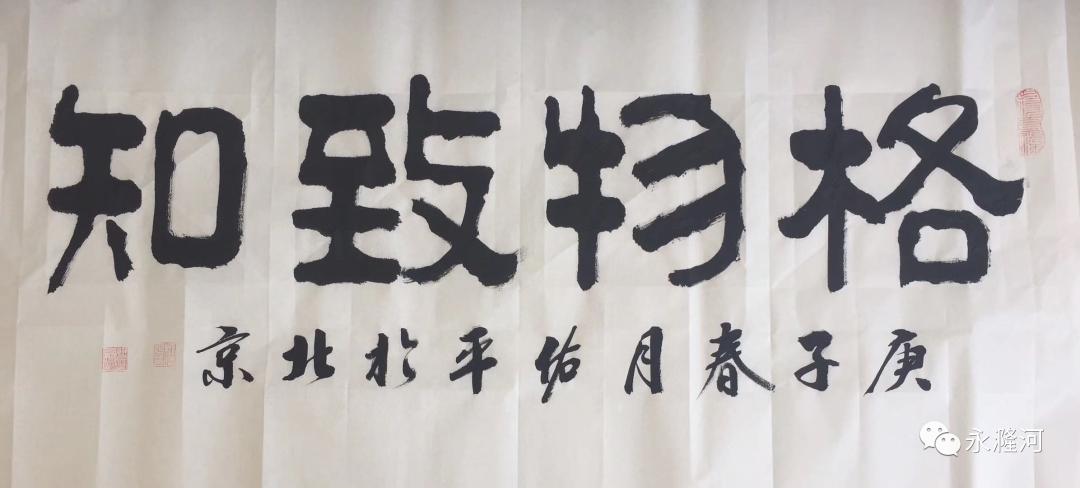 格物致知
庚子春月佑平於北京
永漋河